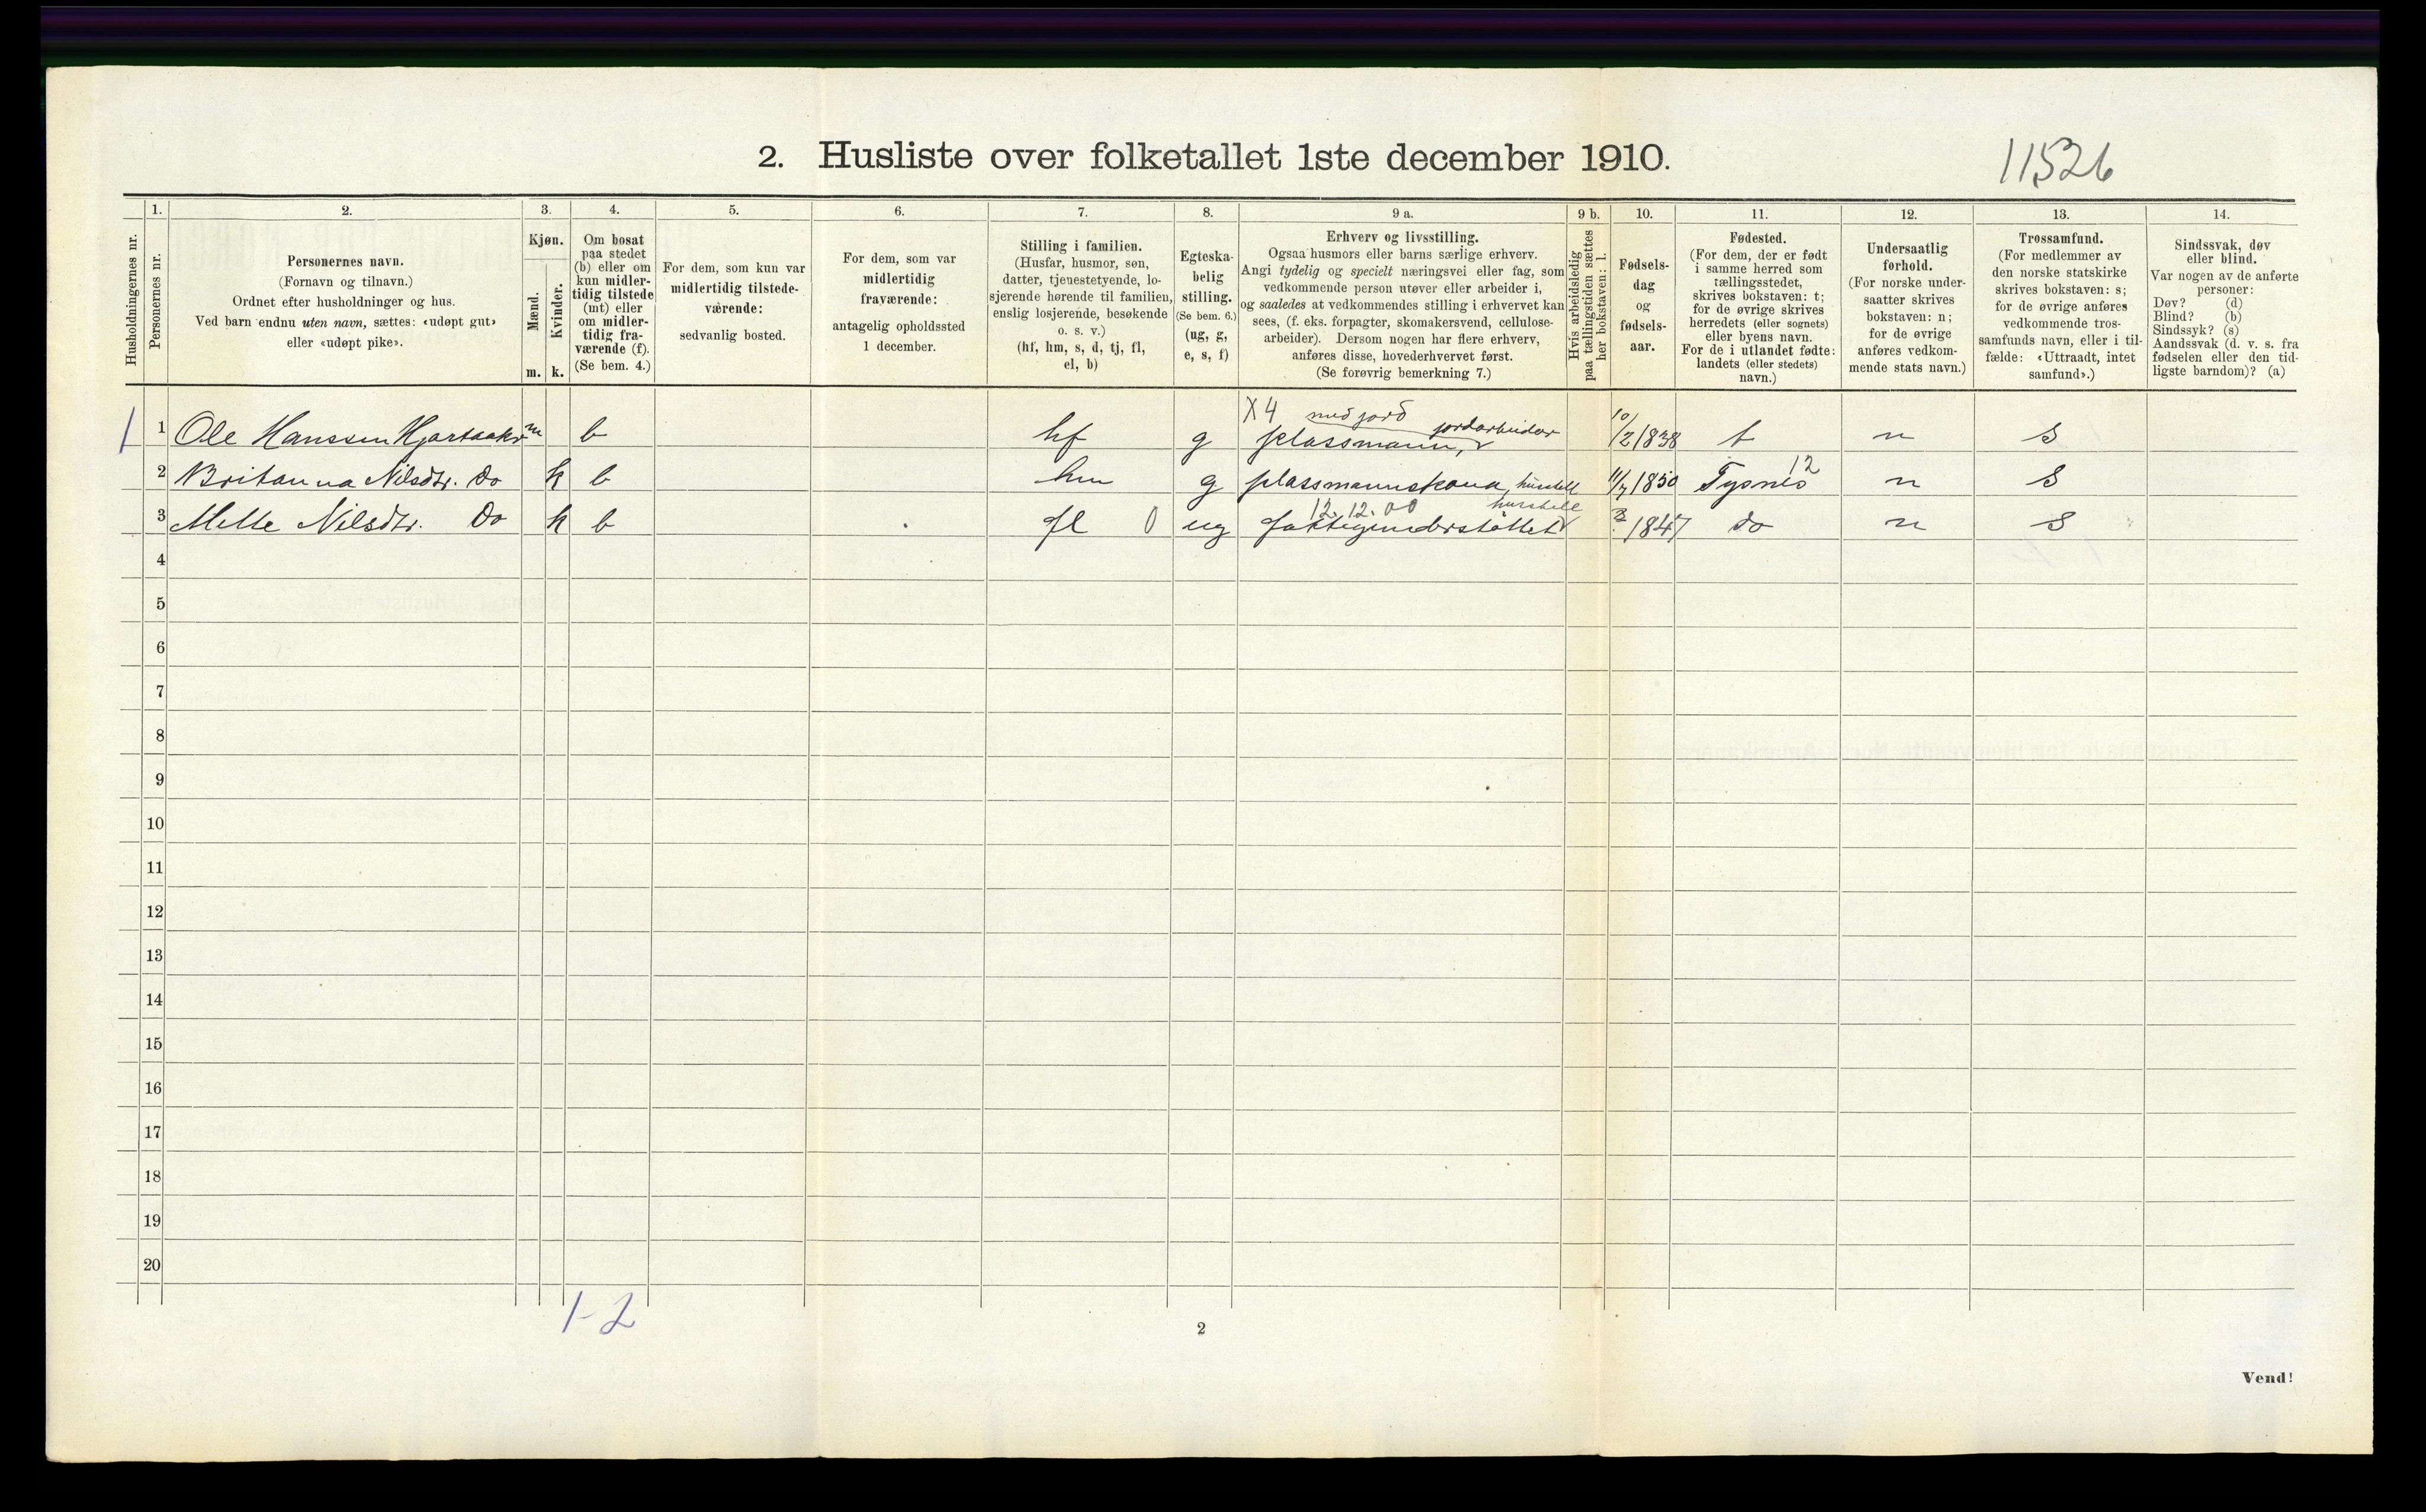 2. Husliste over folketallet 1ste december 1910.
11526
Husholdningernes nr.
1.
Personernes nr.
2.
Personernes navn.
(Fornavn og tilnavn.)
Ordnet efter husholdninger og hus.
Ved barn endnu uten navn, sættes: «udøpt gut»
eller «udøpt pike».
3.
Kjøn.
Mænd.
Kvinder.
m. k.
4.
Om bosat
paa stedet
(b) eller om
kun midler-
tidig tilstede
(mt) eller
om midler-
tidig fra-
værende (f).
(Se bem. 4.)
5.
For dem, som kun var
midlertidig tilstede-
værende:
sedvanlig bosted.
6.
For dem, som var
midlertidig
fraværende:
antagelig opholdssted
1 december.
7.
Stilling i familien.
(Husfar, husmor, søn,
datter, tjenestetyende, lo-
sjerende hørende til familien,
enslig losjerende, besøkende
o. s. v.)
(hf, hm, s, d, tj, fl,
el, b)
8.
Egteska-
belig
stilling.
(Se bem. 6.)
(ug, g,
e, s, f)
9 a.
Erhverv og livsstilling.
Ogsaa husmors eller barns særlige erhverv.
Angi tydelig og specielt næringsvei eller fag, som
vedkommende person utøver eller arbeider i,
og saaledes at vedkommendes stilling i erhvervet kan
sees, (f. eks. forpagter, skomakersvend, cellulose-
arbeider). Dersom nogen har flere erhverv,
anføres disse, hovederhvervet først.
(Se forøvrig bemerkning 7.)
9 b.
Hvis arbeidsledig
paa tællingstiden sættes
her bokstaven: l.
10.
Fødsels-
dag
og
fødsels-
aar.
11.
Fødested.
(For dem, der er født
i samme herred som
tællingsstedet,
skrives bokstaven: t;
for de øvrige skrives
herredets (eller sognets)
eller byens navn.
For de i utlandet fødte:
landets (eller stedets)
navn.)
12.
Undersaatlig
forhold.
(For norske under-
saatter skrives
bokstaven: n;
for de øvrige
anføres vedkom-
mende stats navn.)
13.
Trossamfund.
(For medlemmer av
den norske statskirke
skrives bokstaven: s;
for de øvrige anføres
vedkommende tros-
samfunds navn, eller i til-
fælde: «Uttraadt, intet
samfund».)
14.
Sindssvak, døv
eller blind.
Var nogen av de anførte
personer:
Døv? (d)
Blind? (b)
Sindssyk? (s)
Aandssvak (d. v. s. fra
fødselen eller den tid-
ligste barndom)? (a)
X4 med jord jordarbeider
1 1 Ole Hanssen m b hf g plassmann, 10/2 1838 t n s
12
2 Britanna Nilsdtr. Do k b hm g plassmannskona, husstell 11/7 1850 Tysnes n s
12.12.00 husstell
3 Mette Nilsdtr. Do k b fl 0 ug fattigunderstøttet 1847 do n s
4
5
6
7
8
9
10
11
12
13
14
15
16
17
18
19
20
1-2
2
Vend!